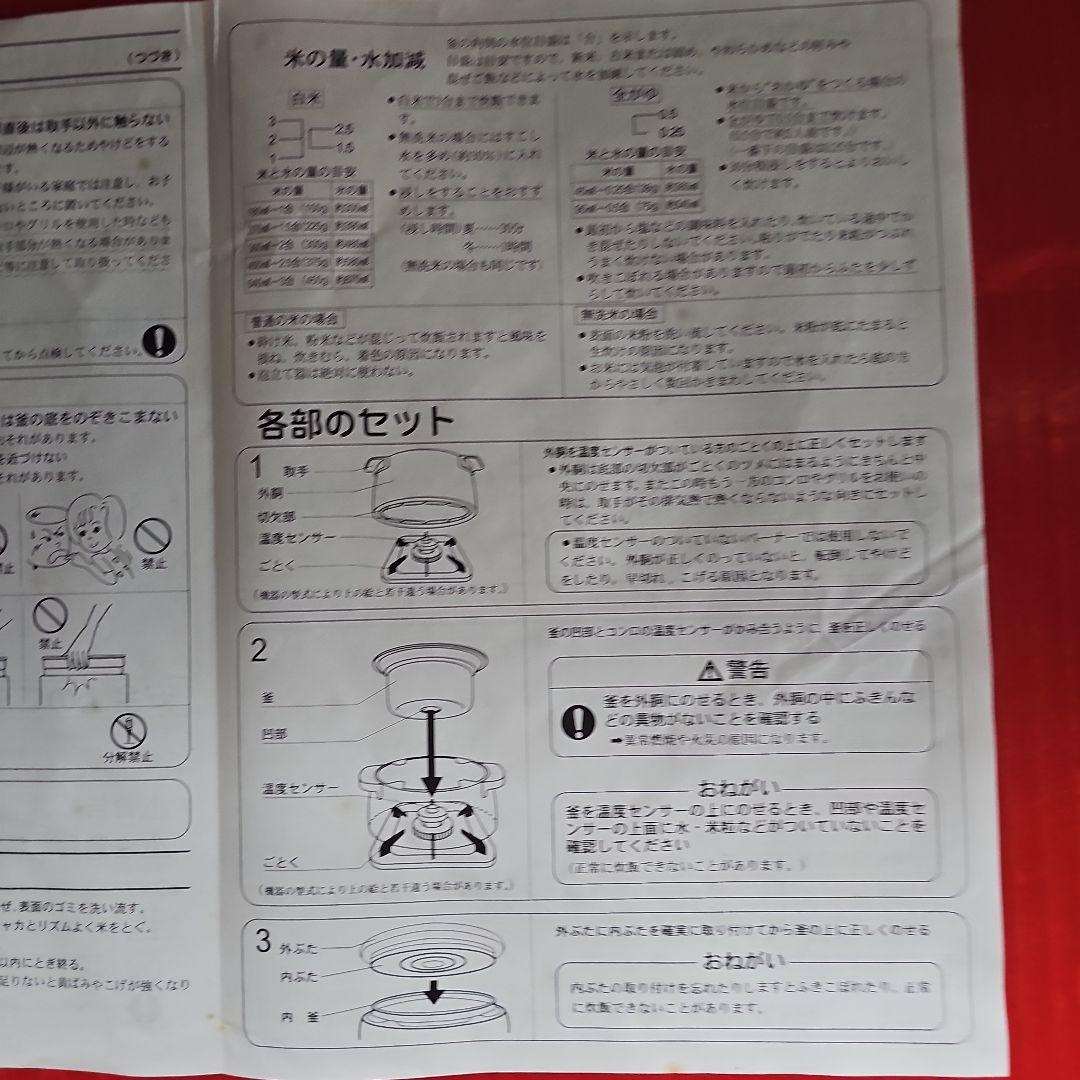 (つづき)
直後は取手以外に触らない
辺が熱くなるためやけどをする
です。
様がいる家庭では注意し、お子
ないところに置いてください。
ロやグリルを使用した時なども
手部分が熱くなる場合がありま
に注意して取り扱ってくださ
てから点検してください。
は釜の底をのぞきこまない
それがあります。
を近づけない
それがあります。
禁止
禁止
分解禁止
ぜ、表面のゴミを洗い流す。
ャカとリズムよく米をとぐ。
以内にとぎ終る。
足りないと黄ばみやこげが強くなり
米の量・水加減
釜の内側の水位目盛は「合」を示します。
目盛は目安ですので、新米、古米または固め、やわらかめなどの好みや
混ぜご飯などによって水を加減してください。
白米
3
2
1
2.5
1.5
米と水の量の目安
米の量 水の量
●白米で3合まで炊飯できま
す。
●無洗米の場合にはすこし
水を多めに入れ
てください。
●浸しをすることをおすす
めします。
(浸し時間)夏……30分
冬……1時間
(無洗米の場合も同じです)
全がゆ
0.5
0.25
米と水の量の目安
米の量 水の量
●米から"おかゆ"をつくる場合の
水位目盛です。
●最初から塩などの調味料を入れたり、炊いている途中でか
き混ぜたりしないでください。粘りがでたり米粒がつぶれ
うまく炊けない場合があります。
●吹きこぼれる場合がありますので最初からふたを少しず
らして炊いてください。
普通の米の場合
●砕け米、粉米などが混じって炊飯されますと風味を
損ね、炊きむら、着色の原因になります。
●泡立て器は絶対に使わない。
無洗米の場合
●表面の米粉を洗い流してください。米粉が底にたまると
生炊けの原因になります。
●お米には気泡が付着していますので水を入れたら底の方
からやさしく数回かきまわしてください。
各部のセット
1
取手
外胴
切欠部
温度センサー
ごとく
(機器の型式により上の絵と若干違う場合があります。)
外胴を温度センサーがついている方のごとくの上に正しくセットします
●外胴は底部の切欠部がごとくのツメにはまるようにきちんと中
央にのせます。またこの時もう一方のコンロやグリルをお使いの
時は、取手がその排気熱で熱くならないような向きにセットし
てください。
●温度センサーのついていないバーナーでは使用しないで
ください。外胴が正しくのっていないと、転倒してやけど
をしたり、早切れ、こげる原因となります。
2
釜
凹部
温度センサー
ごとく
(機器の型式により上の絵と若干違う場合があります。)
釜の凹部とコンロの温度センサーがかみ合うように、釜を正しくのせる
警告
釜を外胴にのせるとき、外胴の中にふきんな
どの異物がないことを確認する
➡異常燃焼や火災の原因になります。
おねがい
釜を温度センサーの上にのせるとき、凹部や温度セ
ンサーの上面に水・米粒などがついていないことを
確認してください
(正常に炊飯できないことがあります。)
3
外ぶた
内ぶた
内 釜
外ぶたに内ぶたを確実に取り付けてから釜の上に正しくのせる
おねがい
内ぶたの取り付けを忘れたりしますとふきこぼれたり、正常
に炊飯できないことがあります。